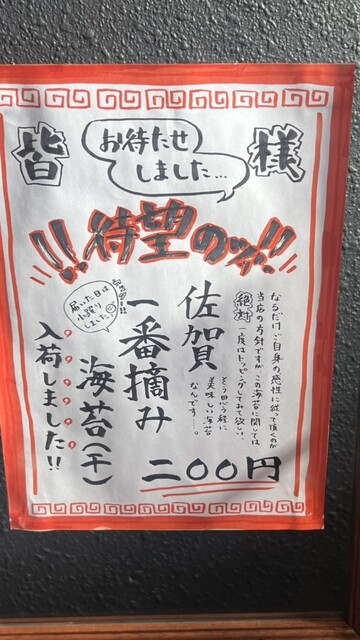 皆様
お待たせ
しました…
!!待望のッ!!
なるだけご自身の感性に従って頂くのが
当店の方針ですが、この海苔に関しては
絶対一度はトッピングしてみて欲しい、
そう思う程に
美味しい海苔
なんです…。
佐賀
一番摘み
海苔(千)
二〇〇円
届いた日は
小躍り
しました
入荷しました!!